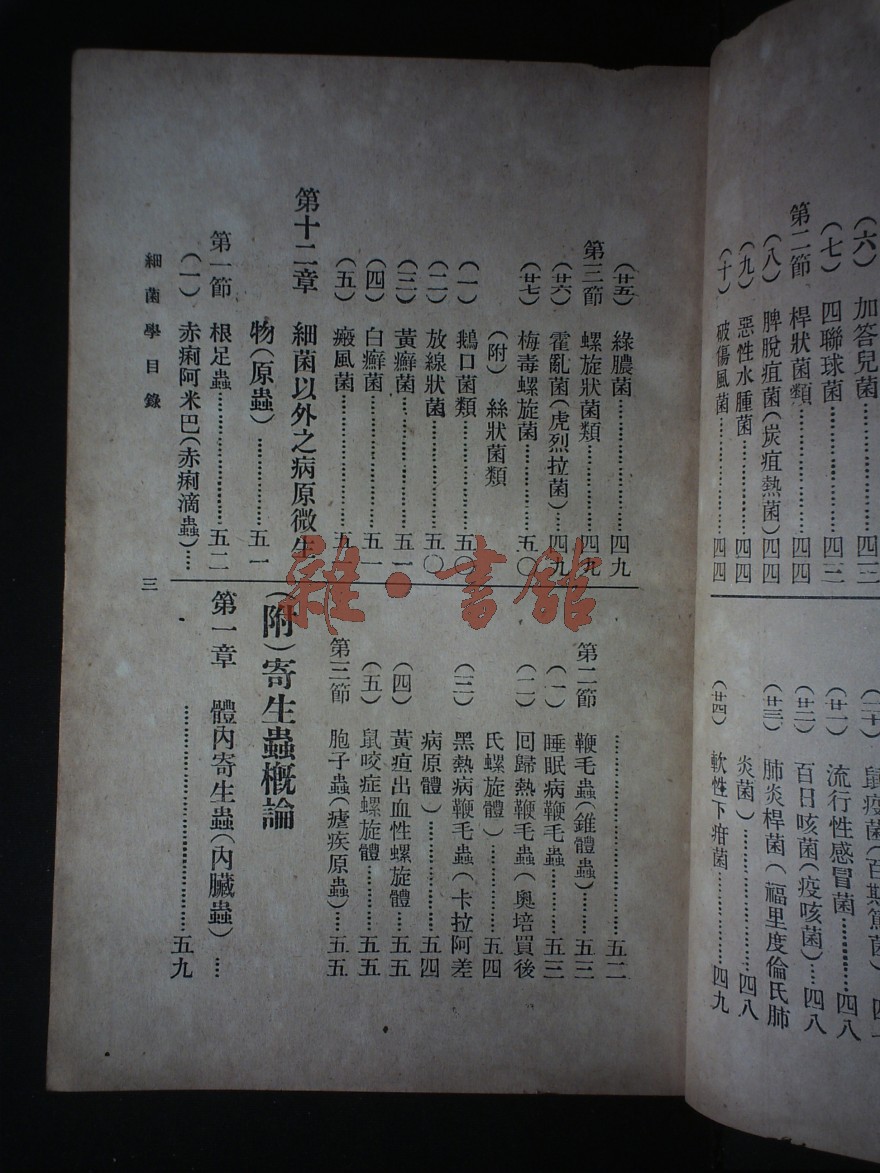 （六） 加答兒菌……………四三
（七） 四聯球菌……………四三
第二節 桿狀菌類……………四四
（八） 脾脫疽菌（炭疽熱菌）四四
（九） 惡性水腫菌……………四四
（十） 破傷風菌……………四四
鼠疫菌
（廿一） 流行性感冒菌……四八
（廿二） 百日咳菌（疫咳菌）…四八
（廿三） 肺炎桿菌（福里度倫氏肺
炎菌）……………四八
（廿四） 軟性下疳菌……………四九
（廿五） 綠膿菌……………四九
第三節 螺旋狀菌類……………四九
（廿六） 霍亂菌（虎烈拉菌）…四九
（廿七） 梅毒螺旋菌……………五〇
（附） 絲狀菌類
（一） 鵝口菌類……………五〇
（二） 放線狀菌……………五〇
（三） 黃癬菌……………五一
（四） 白癬菌……………五一
（五） 癜風菌……………五一
第十二章 細菌以外之病原微生
物（原蟲）……………五一
第一節 根足蟲……………五二
（一） 赤痢阿米巴（赤痢滴蟲）…
……………五二
第二節 鞭毛蟲（錐體蟲）……五三
（一） 睡眠病鞭毛蟲……五三
（二） 回歸熱鞭毛蟲（奧培買後
氏螺旋體）……………五四
（三） 黑熱病鞭毛蟲（卡拉阿差
病原體）……………五四
（四） 黃疸出血性螺旋體……五五
（五） 鼠咬症螺旋體……………五五
第三節 胞子蟲（瘧疾原蟲）…五五
（附）寄生蟲概論
第一章 體內寄生蟲（內臟蟲）…
……………五九
細菌學目錄
三
雜·書館